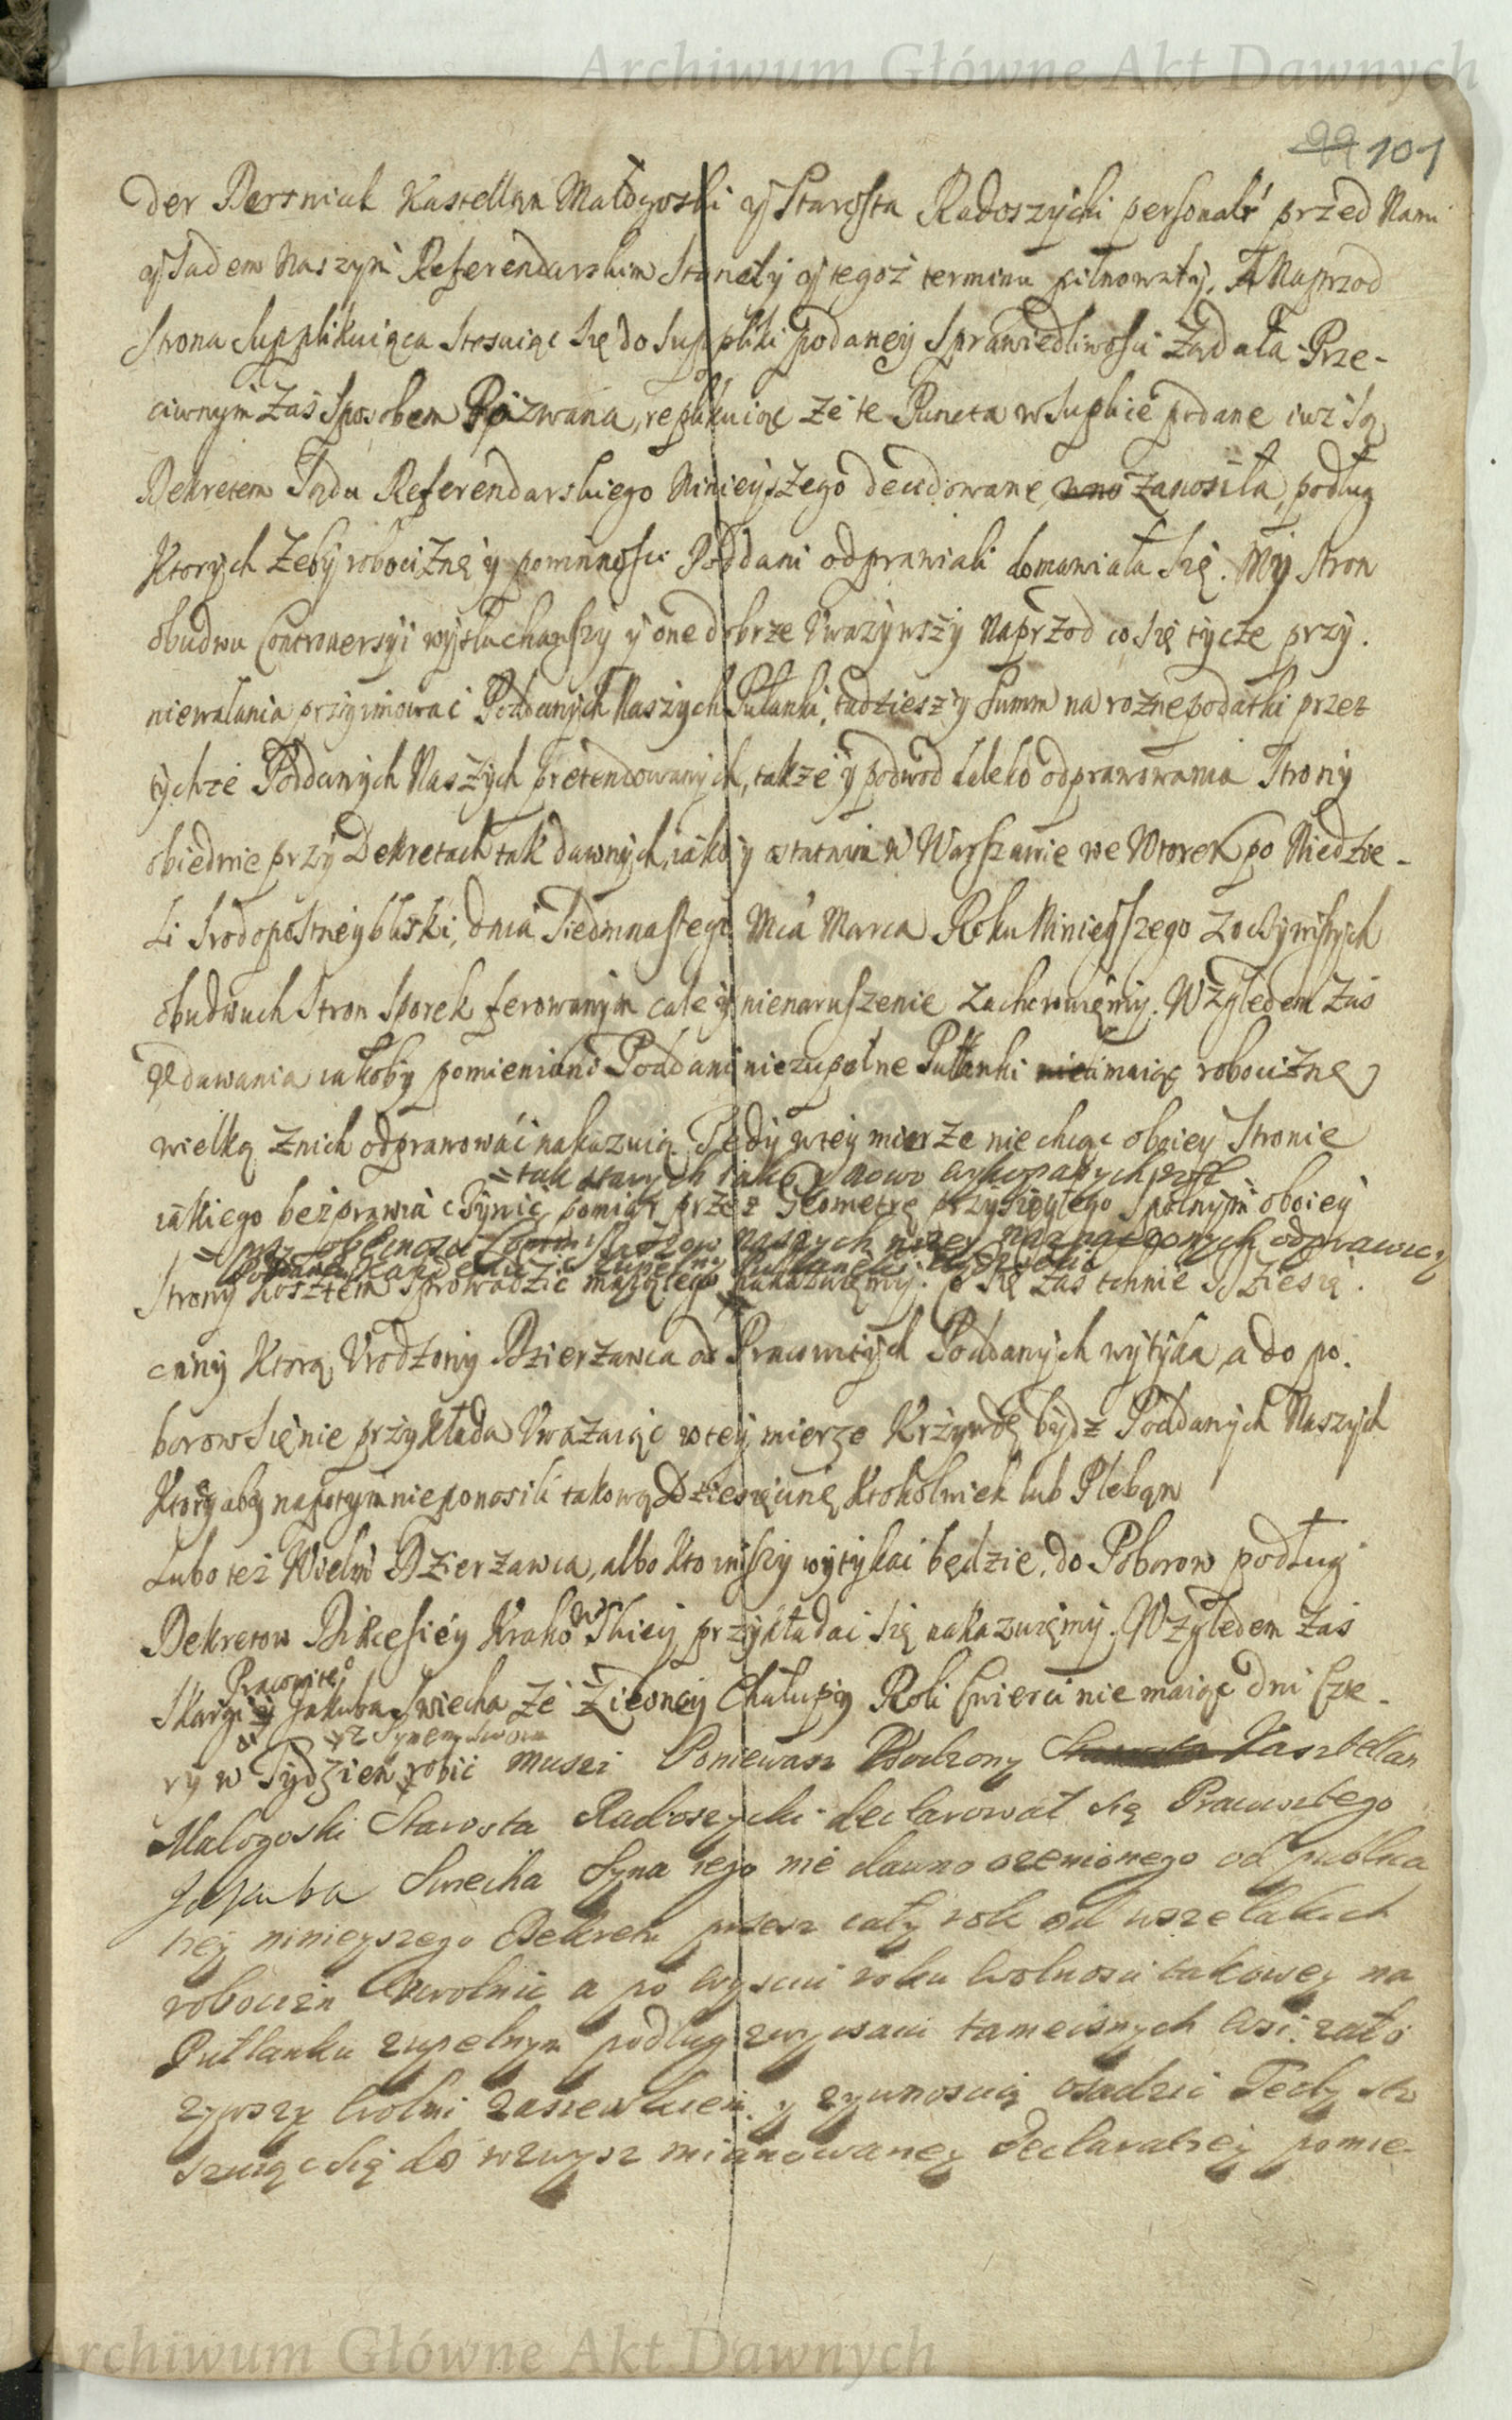 Archiwum Główne Akt Dawnych
99 101
der Kastellan Małogoski y Starosta Radoszycki personalr przed Nami
y Sadem Naszym Referendarskim Staneły y tegoż terminu pilnowały. A Naprzod
Strona Supplikuiąca Stosuiąc Się do Suppliki podaney Sprawiedliwosci Żądała Prze-
ciwnym Zaś Sposobem Pozwana, replikuiąc że te Puncta w Suplice podane iuż Są
Dekretem Sądu Referendarskiego Ninieyszego decidowane, zanosiła, podług
Ktorych Żeby robociznę y powinnosci Poddani odprawiali domawiała Się. My Stron
obudwu Controwersyi wysłuchawszy y one dobrze Uwazywszy Naprzod co Się tycze przy.
niewalania przyimować Poddanych Naszych Pułanki, tudziesz y Summ na rozne podatki przez
tychże Poddanych Naszych pretendowanych, także y podwod daleko odprawowania Strony
obiedwie przy Dekretach tak dawnych, iako y ostatnim w Warszawie we Wtorek po Niedzie-
li Srodopostney bliski, dnia Siedmnastego Mca Marca Roku Ninieyszego z oczywistych
obudwuch Stron Sporek ferowanym cale y nienaruszenie zachowuięmy. Względem Zaś
iakoby pomienieni Poddani niezupełne Pułanki maiąc robociznę
wielką z nich odprawować nakazuią. Tedy w tey mierze nie chcąc oboiey Stronie
= tak starych iako y nowo wykopanych
iakiego bezprawia czynić, pomiar przez Geometrę przysięgłego Spolnym oboiey
= przy obecnosci naszych nizey naznaczonych odprawić
Strony Kosztem Sprowadzić maiącego nakazuięmy. Co Się zaś tchnie Dziesię.
ciny Ktorą Urodzony Dzierzawca od Pracowitych Poddanych wytyka, a do po.
borow Się nie przykłada Uważaiąc w tey mierze Krzywdę bydz Poddanych Naszych
Ktorzy aby napotym nieponosili takową Dziesięcinę Ktokolwiek lub Pleban
Lubo też Wielm Dzierzawca, albo Kto inszy wytykać będzie, do Poborow podług
Dekretow Dikcesiey Krakowskiey przykładać Się nakazuięmy. Względem Zaś
Pracowitego
Skargi Jakuba Swiecha że z iedney Chałupy Roli Cwierci nie maiąc dni Czte-
z Synem dwom
ry w Tydzień robić musi Poniewasz Urodzony Starosta Kasztellan
Malogoski Starosta Radoszycki declarował się Pracowitego
Jakuba Swiecha Syna iego nie dawno ozenionego od publica
tiey ninieyszego Dekretu przesz cały rok od wszelakich
robocizn Uwolnic a po wysciu roku wolnosci takowey na
Pułlanku zupelnym podług zwyczaiu tameisnych wsi. zało
zywszy wolmi zasiewkiem y zywnoscią osadzic Tedy sto
suiąc się do wzwysz mianowaney Declaratiey pomie-
Archiwum Główne Akt Dawnych